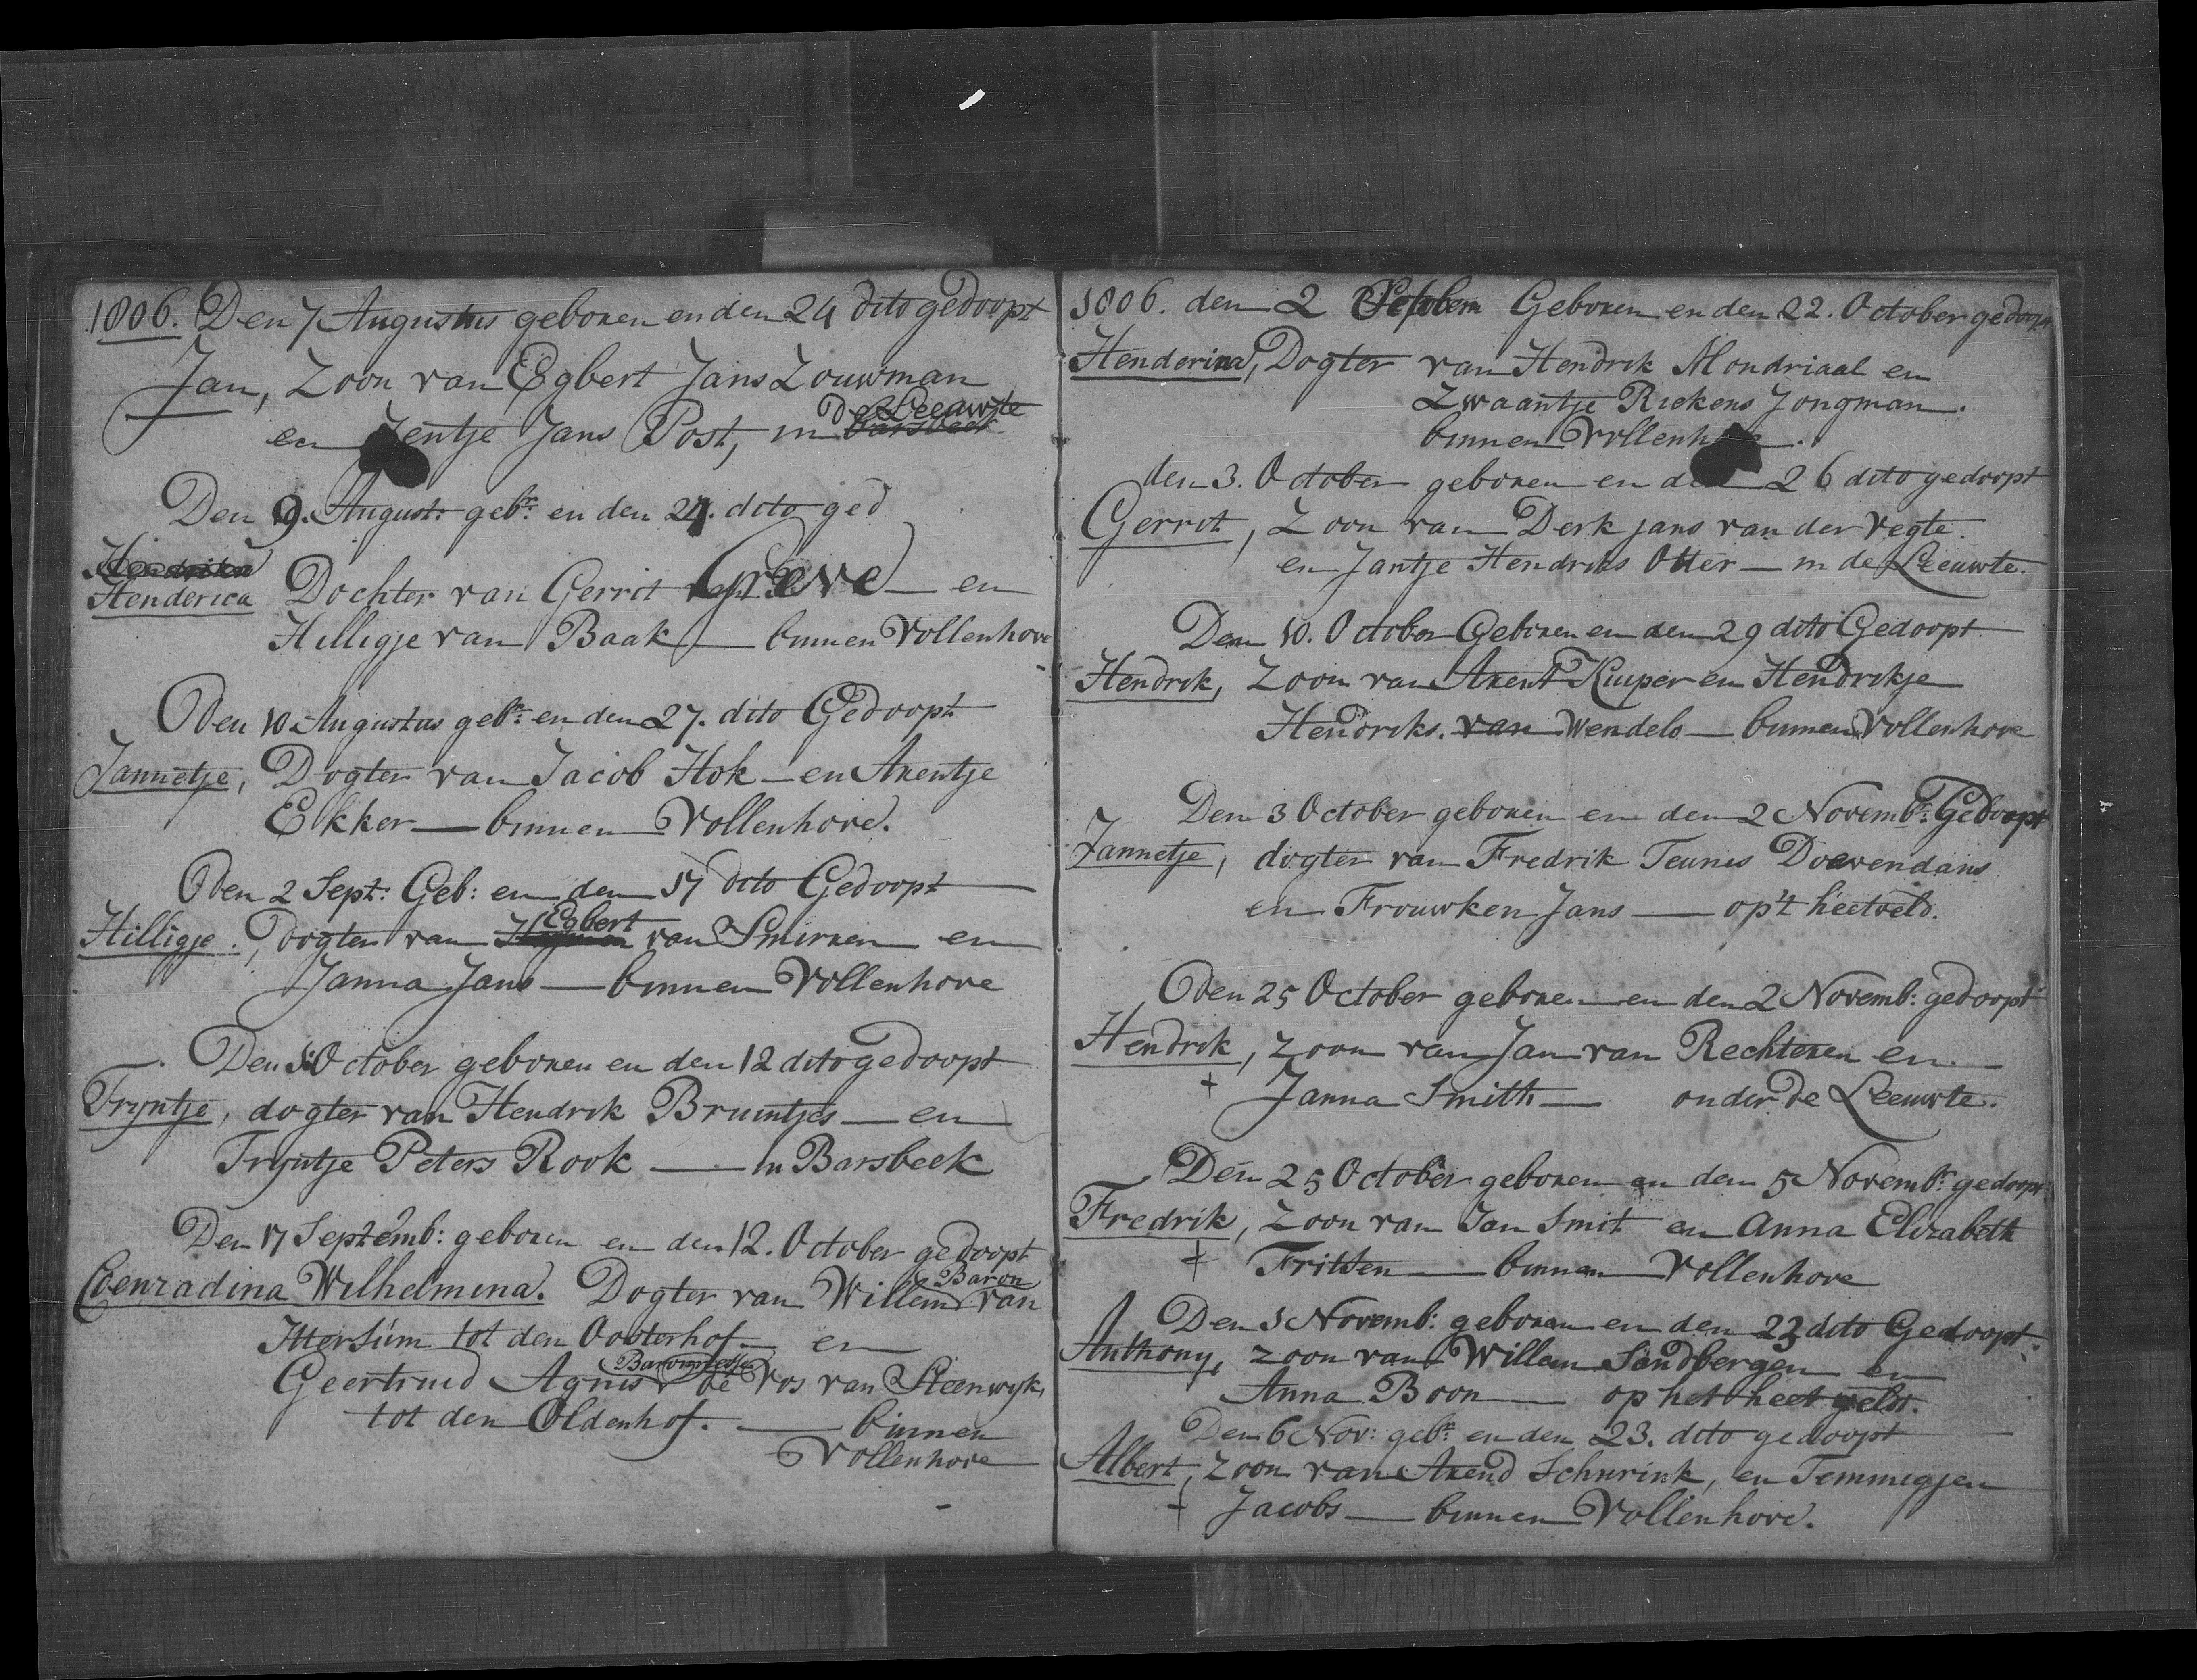 1806. Den 7 Augustus geboren en den 24 dito gedoopt
Jan, Zoon van Egbert Jans Zouwman
de Leeuwte
en Jentje Jans Post, in Barsbeek
Den 9. August: gebr: en den 24. dito ged
Hendrika
Henderica Dochter van Gerrit Greve — en
Hilligje van Baak — binnen Vollenhove
Den 10 Augustus gebr: en den 27. dito Gedoopt
Jannetje, Dogter van Jacob Hok — en Arentje
Ekker — binnen Vollenhove.
Den 2 Sept: Geb: en den 17 dito Gedoopt
Egbert
Hilligje. Dogter van van Smirren en
Janna Jans — binnen Vollenhove
Den 5: October geboren en den 12 dito gedoopt
Tryntje, dogter van Hendrik Bruintjes — en
Tryntje Peters Rook — in Barsbeek
Den 17 Septemb: geboren en den 12. October gedoopt
Baron
Coenradina Wilhelmina. Dogter van Willem van
Ittersum tot den Oosterhof — en
Baronnesse
Geertruid Agnis de Vos van Steenwyk,
tot den Oldenhof. — binnen
Vollenhove
1806. den 2 October Geboren en den 22. October gedoopt
Henderina, Dogter van Hendrik Mondriaal en
Zwaantje Riekens Jongman.
binnen Vollenhove.
den 3. October geboren en den 26 dito gedoopt
Gerrit, Zoon van Derk jans van der vegte.
en Jantje Hendriks Otter — in de Leeuwte.
Den 10. October Geboren en den 29 dito Gedoopt
Hendrik, Zoon van Arent Kuiper en Hendrikje
Hendriks. van Wendels — binnen Vollenhove
Den 3 October geboren en den 2 Novembr: Gedoopt
Jannetje, dogter van Fredrik Teunis Doevendans
en Frouwken Jans — op't heetveld.
Den 25 October geboren en den 2 Novemb: gedoopt
Hendrik, zoon van Jan van Rechteren en
+ Janna Smith — onder de Leeuwte.
Den 25 October geboren en den 5 Novembr: gedoopt
Fredrik, Zoon van Jan Smit en Anna Elizabeth
+ Fritsen — binnen Vollenhove
Den 1 Novemb: geboren en den 23 dito Gedoopt
Anthony, zoon van Willem Sandbergen en
Anna Boon — op het heet veldt.
Den 6 Nov: gebr: en den 23. dito gedoopt
Albert, Zoon van Arend Schurink, en Temmigjen
+ Jacobs — binnen Vollenhove.